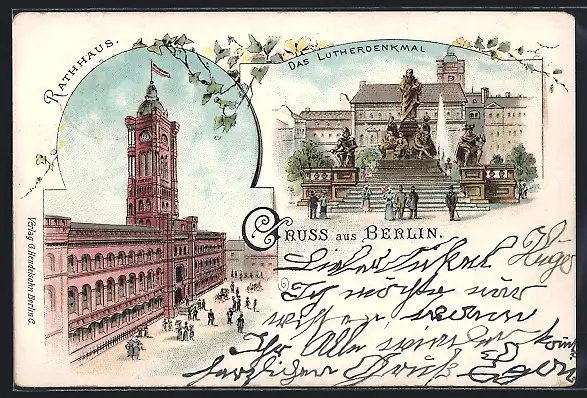 RATHHAUS.
DAS LUTHERDENKMAL
Verlag G. Hendelsohn Berlin C.
GRUSS AUS BERLIN.
Lieber Onkel Hugo
Ich möchte nur
wissen,
Ihr Alle
herzlichen Gruß